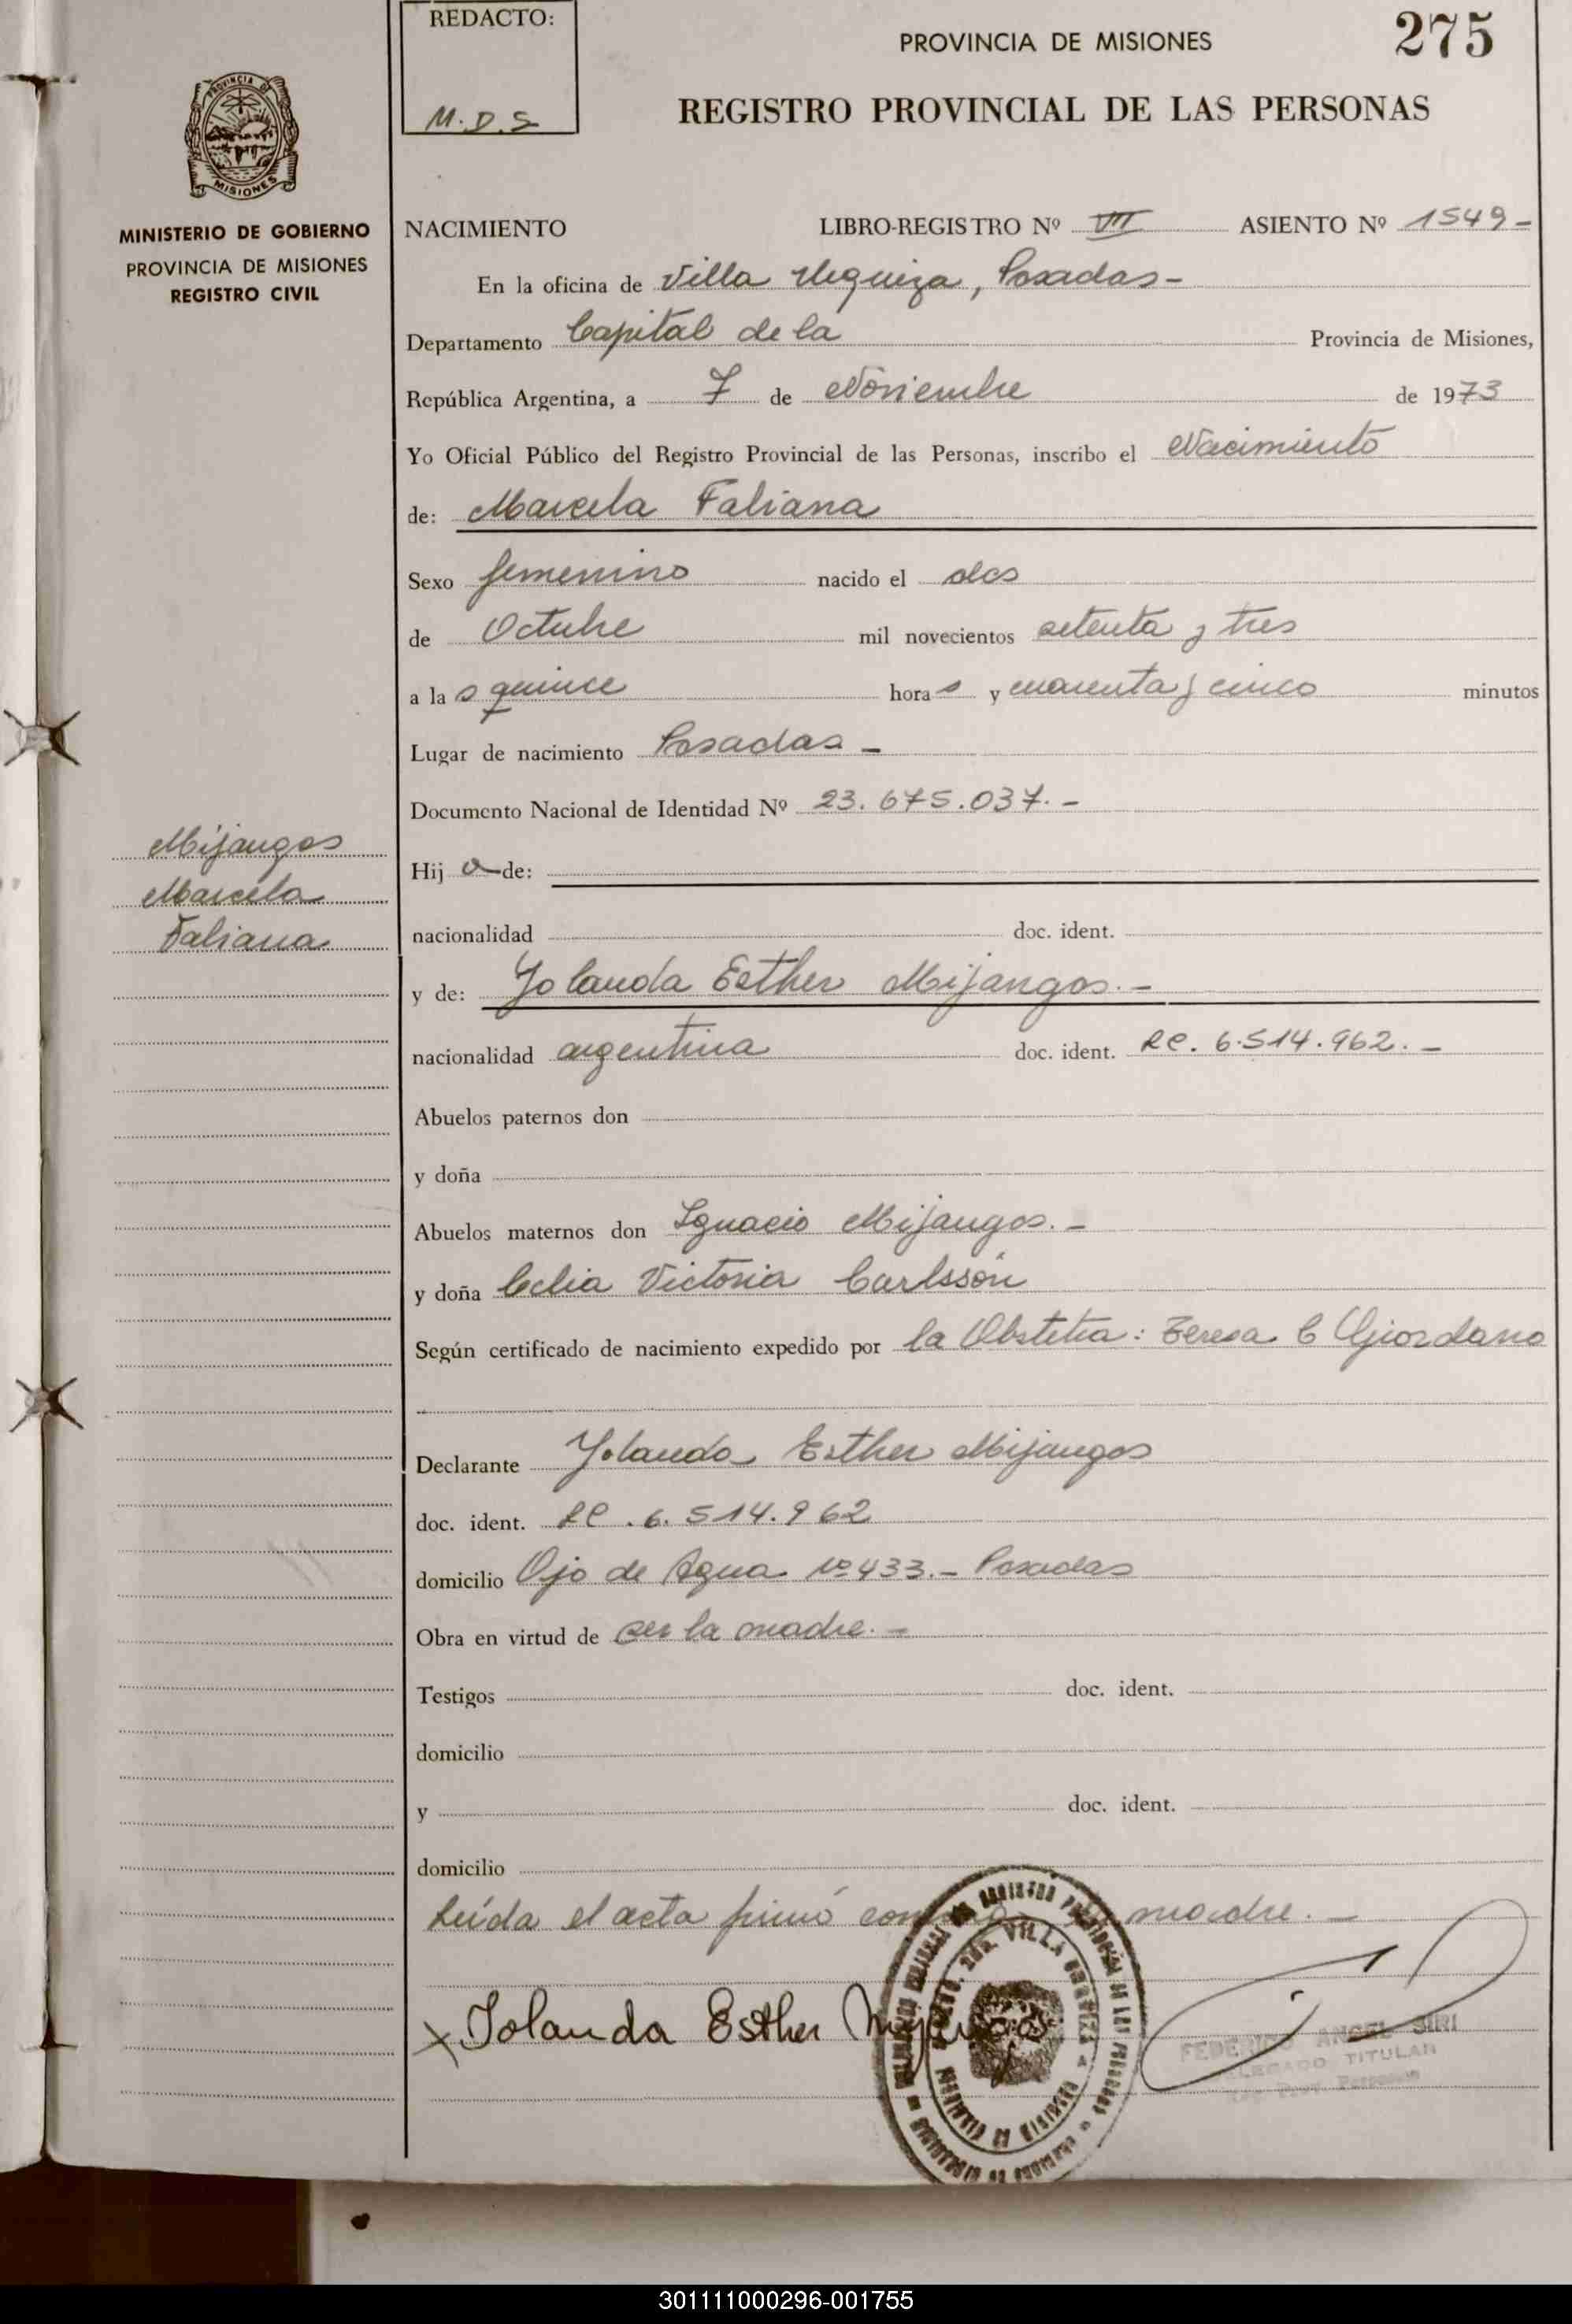 REDACTO:
M.D.S
PROVINCIA DE MISIONES
275
REGISTRO PROVINCIAL DE LAS PERSONAS
PROVINCIA DE
MISIONES
MINISTERIO DE GOBIERNO
PROVINCIA DE MISIONES
REGISTRO CIVIL
NACIMIENTO LIBRO-REGISTRO Nº VII ASIENTO Nº 1549-
En la oficina de Villa Urquiza, Posadas-
Departamento Capital de la Provincia de Misiones,
República Argentina, a 7 de Noviembre de 1973
Yo Oficial Público del Registro Provincial de las Personas, inscribo el Nacimiento
de: Marcela Faliana
Sexo femenino nacido el dos
de Octubre mil novecientos setenta y tres
a las quince horas y cuarenta y cinco minutos
Lugar de nacimiento Posadas -
Documento Nacional de Identidad Nº 23.675.037.-
Mijangos
Marcela
Faliana
Hija de:
nacionalidad doc. ident.
y de: Yolanda Esther Mijangos.-
nacionalidad argentina doc. ident. LC. 6.514.962.-
Abuelos paternos don
y doña
Abuelos maternos don Ignacio Mijangos.-
y doña Celia Victoria Carlsson
Según certificado de nacimiento expedido por la Obstetra: Teresa C Giordano
Declarante Yolanda Esther Mijangos
doc. ident. LC. 6.514.962
domicilio Ojo de Agua Nº 433.- Posadas
Obra en virtud de ser la madre.-
Testigos doc. ident.
domicilio
y doc. ident.
domicilio
Leída el acta firmó conmigo la madre.-
x Yolanda Esther Mijangos
FEDERICO ANGEL SIRI
DELEGADO TITULAR
301111000296-001755